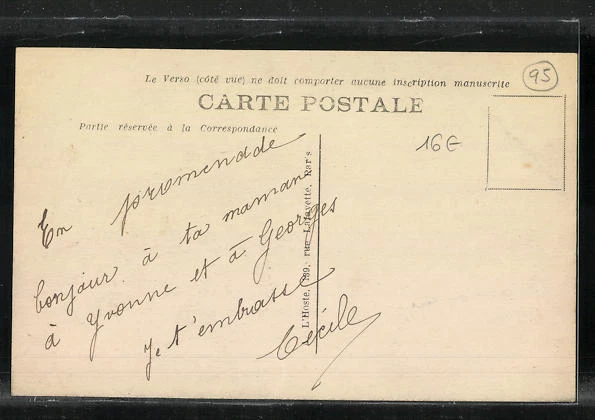 Le Verso (côté vue) ne doit comporter aucune inscription manuscrite
95
CARTE POSTALE
Partie réservée à la Correspondance
16€
En promenade
bonjour à ta maman
à Yvonne et à Georges
Je t'embrasse
Cécile
L'Hoste, 189, rue Lafayette, Paris